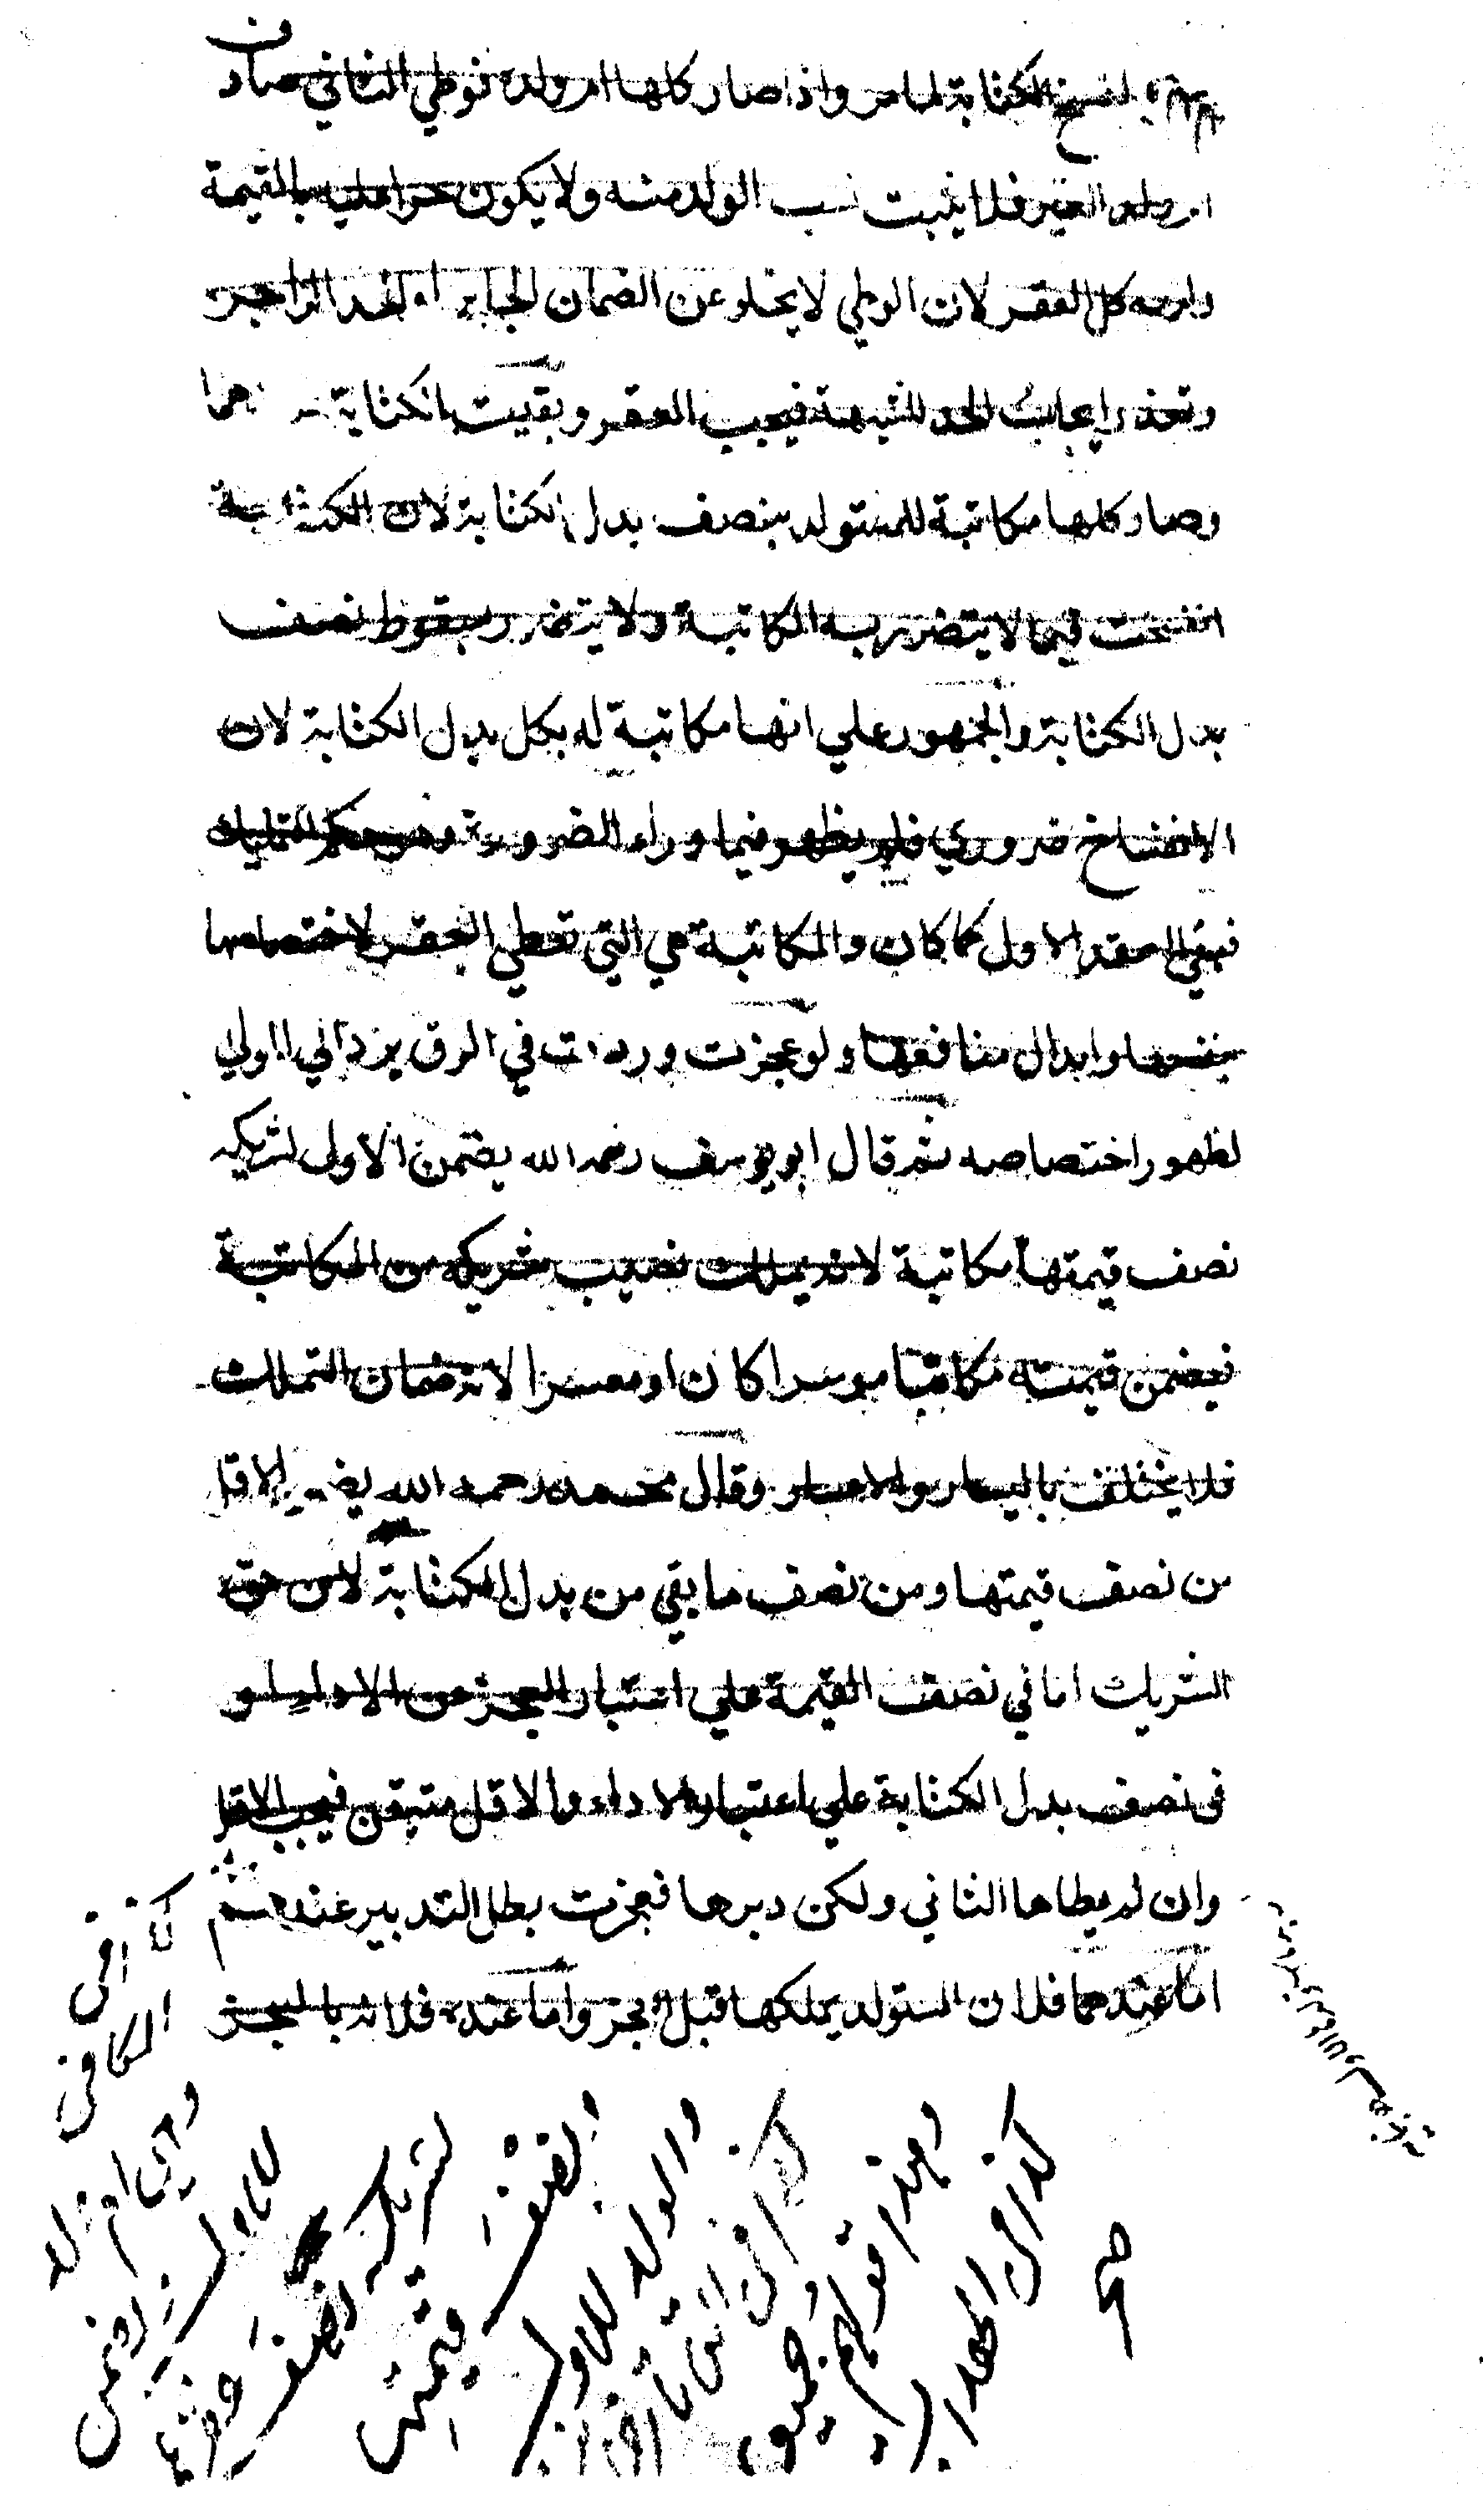 تفسخ الكتابة لما مر واذا صار كلها ام ولد له فوطي الثاني صادف
ام ولد الغير فلا يثبت نسب الولد منه ولا يكون حرا عليه بالقيمة
ولزمه كل العقر لان الوطي لا يخلو عن الضمان الجابر او الحد الزاجر
وتعذر ايجاب الحد للشبهة فيجب العقر وبقيت الكتابة
وصار كلها مكاتبة للمستولد بنصف بدل الكتابة لان الكتابة
انفسخت فيما لا يتضرر به المكاتبة ولا يتضرر بسقوط نصف
بدل الكتابة والجمهور علي انها مكاتبة له بكل بدل الكتابة لان
الانفساخ ضروري فلم يظهر فيما وراء الضرورة وهي حكم التمليك
فبقي العقد الاول كما كان والمكاتبة هي التي تعطي العقر لاختصاصها
بنفسها وابدال منافعها ولو عجزت وردت في الرق يرد الي الاولي
لظهور اختصاصه ثم قال ابو يوسف رحمه الله يضمن الاول لشريكه
نصف قيمتها مكاتبة لانه يملك نصيب شريكه من المكاتبة
فيضمن قيمته مكاتبا موسرا كان او معسرا لانه ضمان التملك
فلا يختلف باليسار والاعسار وقال محمد رحمه الله يضمن الاقل
من نصف قيمتها ومن نصف ما بقي من بدل الكتابة لان حق
الشريك اما في نصف القيمة علي اعتبار العجز عن الاداء او
في نصف بدل الكتابة علي اعتبار الاداء والاقل متيقن فيجب الاقل
وان لم يطاها الثاني ولكن دبرها فعجزت بطل التدبير عندهم
اما عندهما فلان المستولد يملكها قبل العجز واما عنده فلانه بالعجز
كذا في
الكافي
وهي ام ولد
للاول
لشريكه نصف
نصف قيمتها
والولد للاول
كذا في
كذا في الهداية